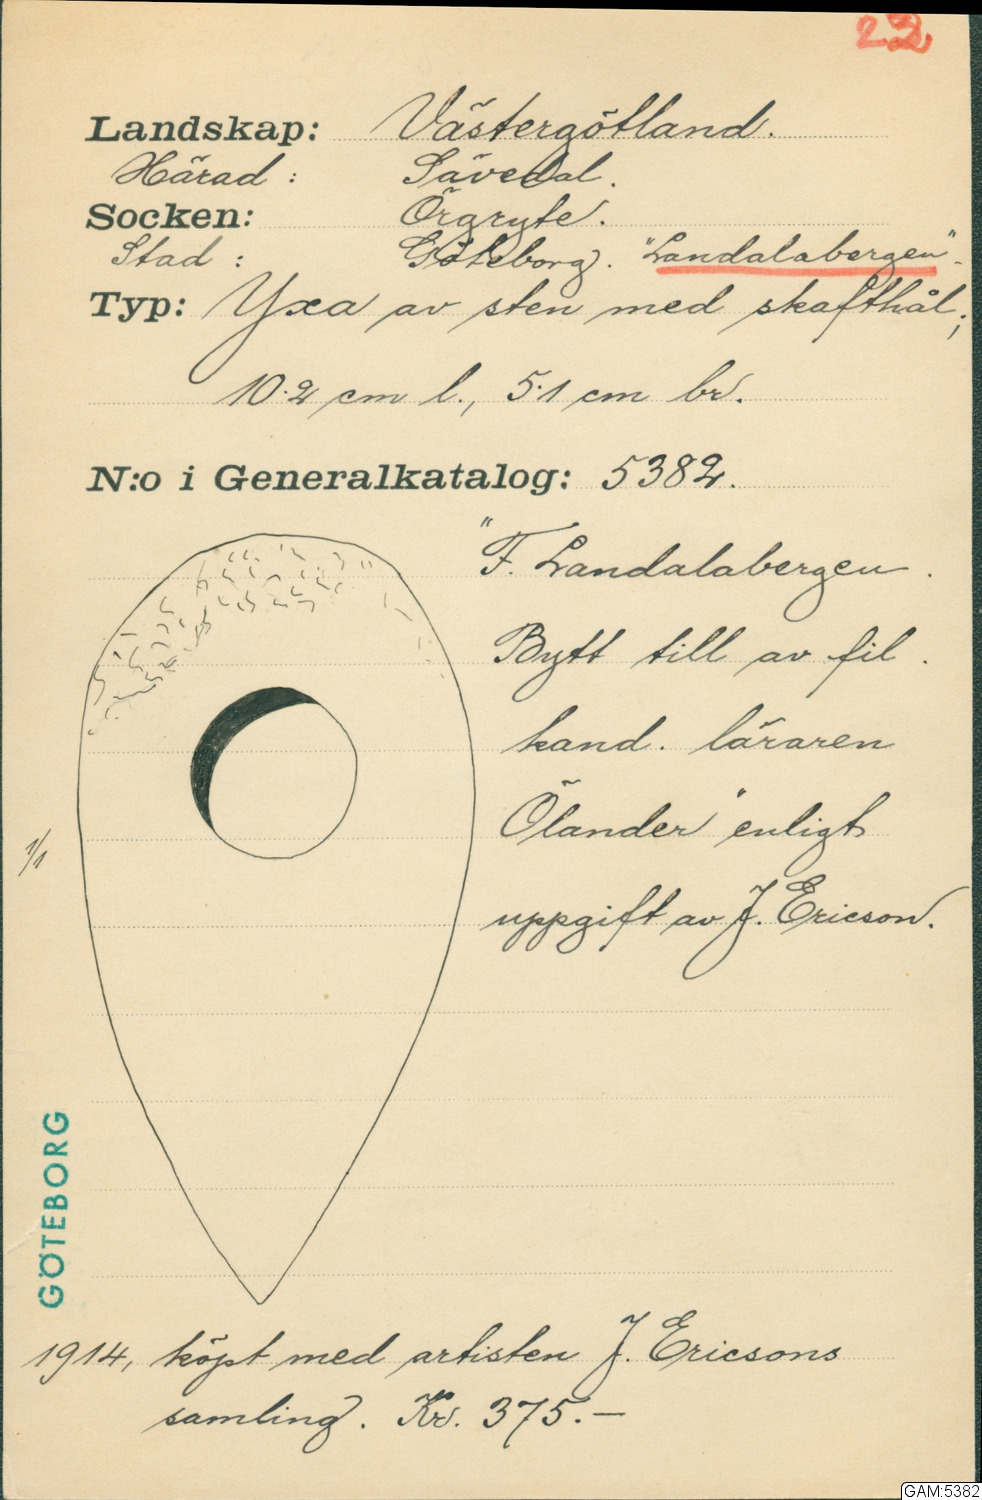 22
Landskap: Västergötland.
Härad: Sävedal.
Socken: Örgryte.
Stad: Göteborg. "Landalabergen".
Typ: Yxa av sten med skafthål;
10.2 cm l., 5.1 cm br.
N:o i Generalkatalog: 5382.
"F. Landalabergen.
Bytt till av fil.
kand. läraren
Ölander" enligt
uppgift av J. Ericson.
1/1
GÖTEBORG
1914, köpt med artisten J. Ericsons
samling. Kr. 375.–
GAM:5382